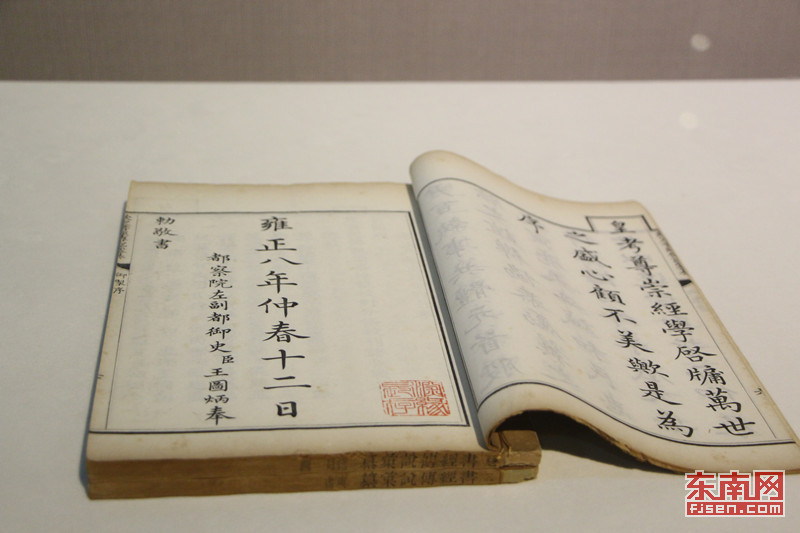 皇考尊崇經學啓牖萬世
之盛心顧不美歟是為
序
雍正八年仲春十二日
都察院左副都御史臣王圖炳奉
勅敬書
御製序
东南网
fjsen.com